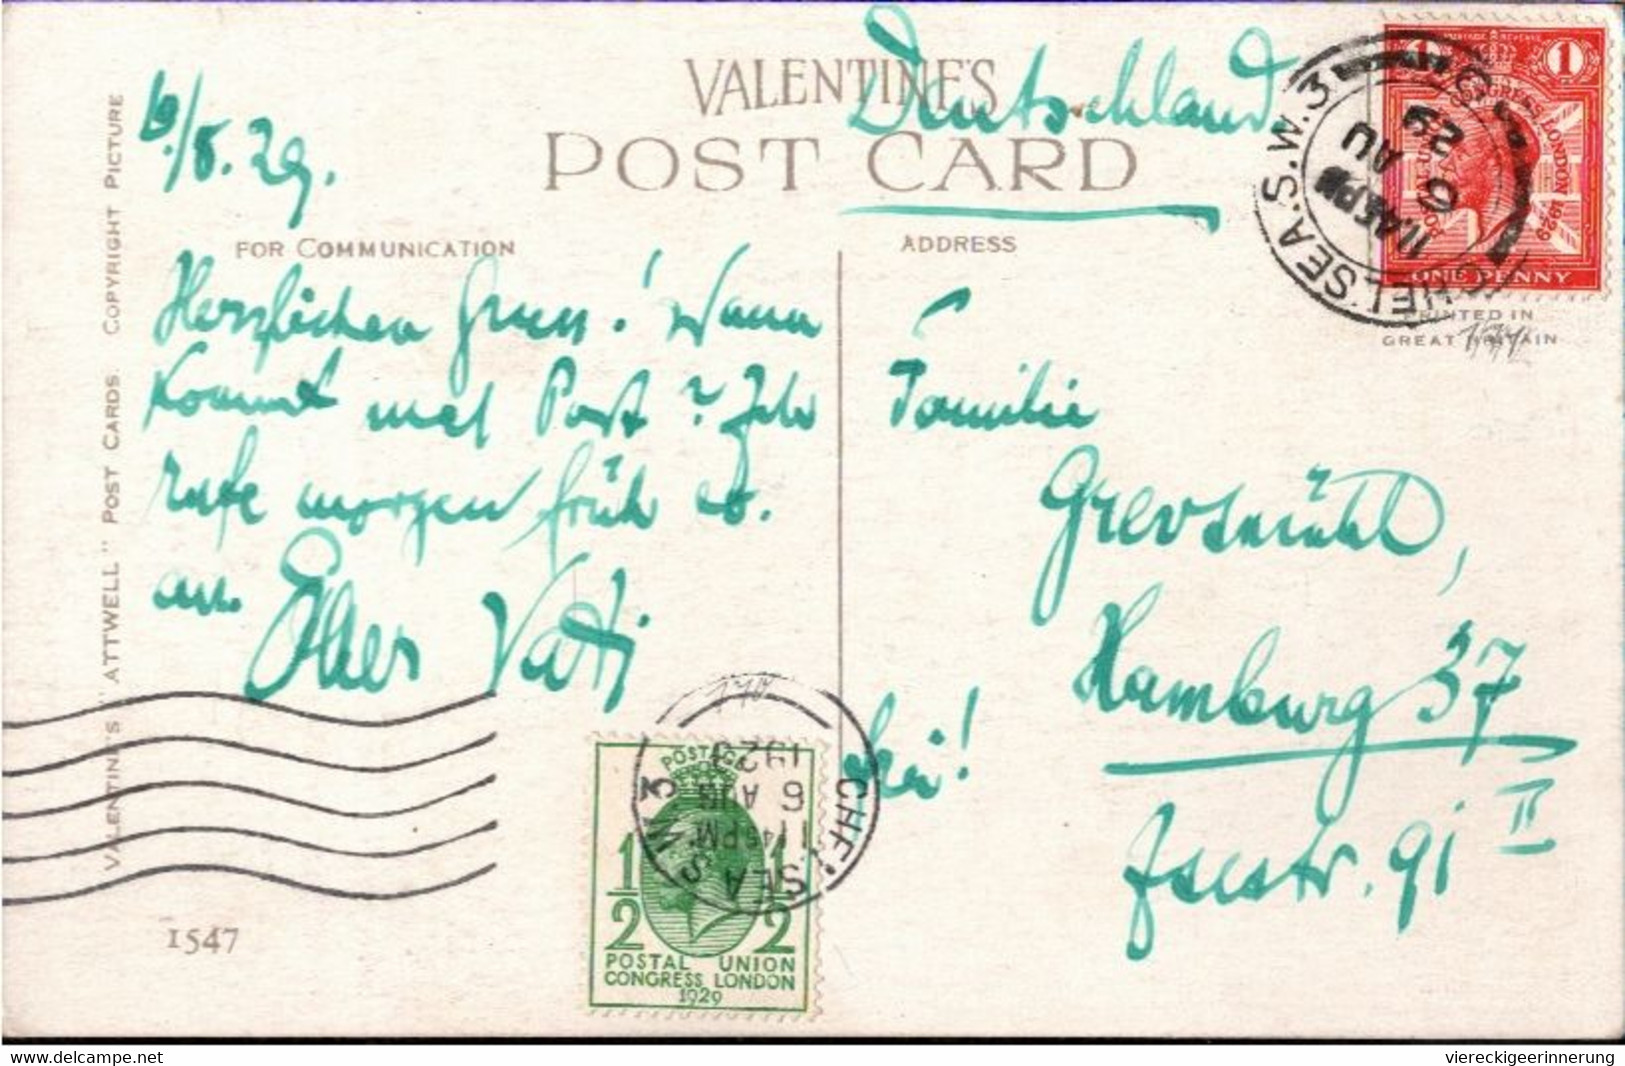 VALENTINE'S
POST CARD
Deutschland
6/8.29.
FOR COMMUNICATION
ADDRESS
Herzlichen Gruss! Wann
kommt mal Post? Ich
rufe morgen früh
an. Euer Vati
Familie
Grevsmühl,
Hamburg 37
bei!
str. 91 II
VALENTINE'S "ATTWELL" POST CARDS. COPYRIGHT PICTURE
1547
PRINTED IN
GREAT BRITAIN
1 1
POSTAL UNION CONGRESS LONDON 1929
ONE PENNY
CHELSEA.S.W.3
11.45PM
6 AU
29
POSTAGE
1/2 1/2
POSTAL UNION
CONGRESS LONDON
1929
CHELSEA S.W.3
11 45 PM
6 AUG
1929
www.delcampe.net
viereckigeerinnerung